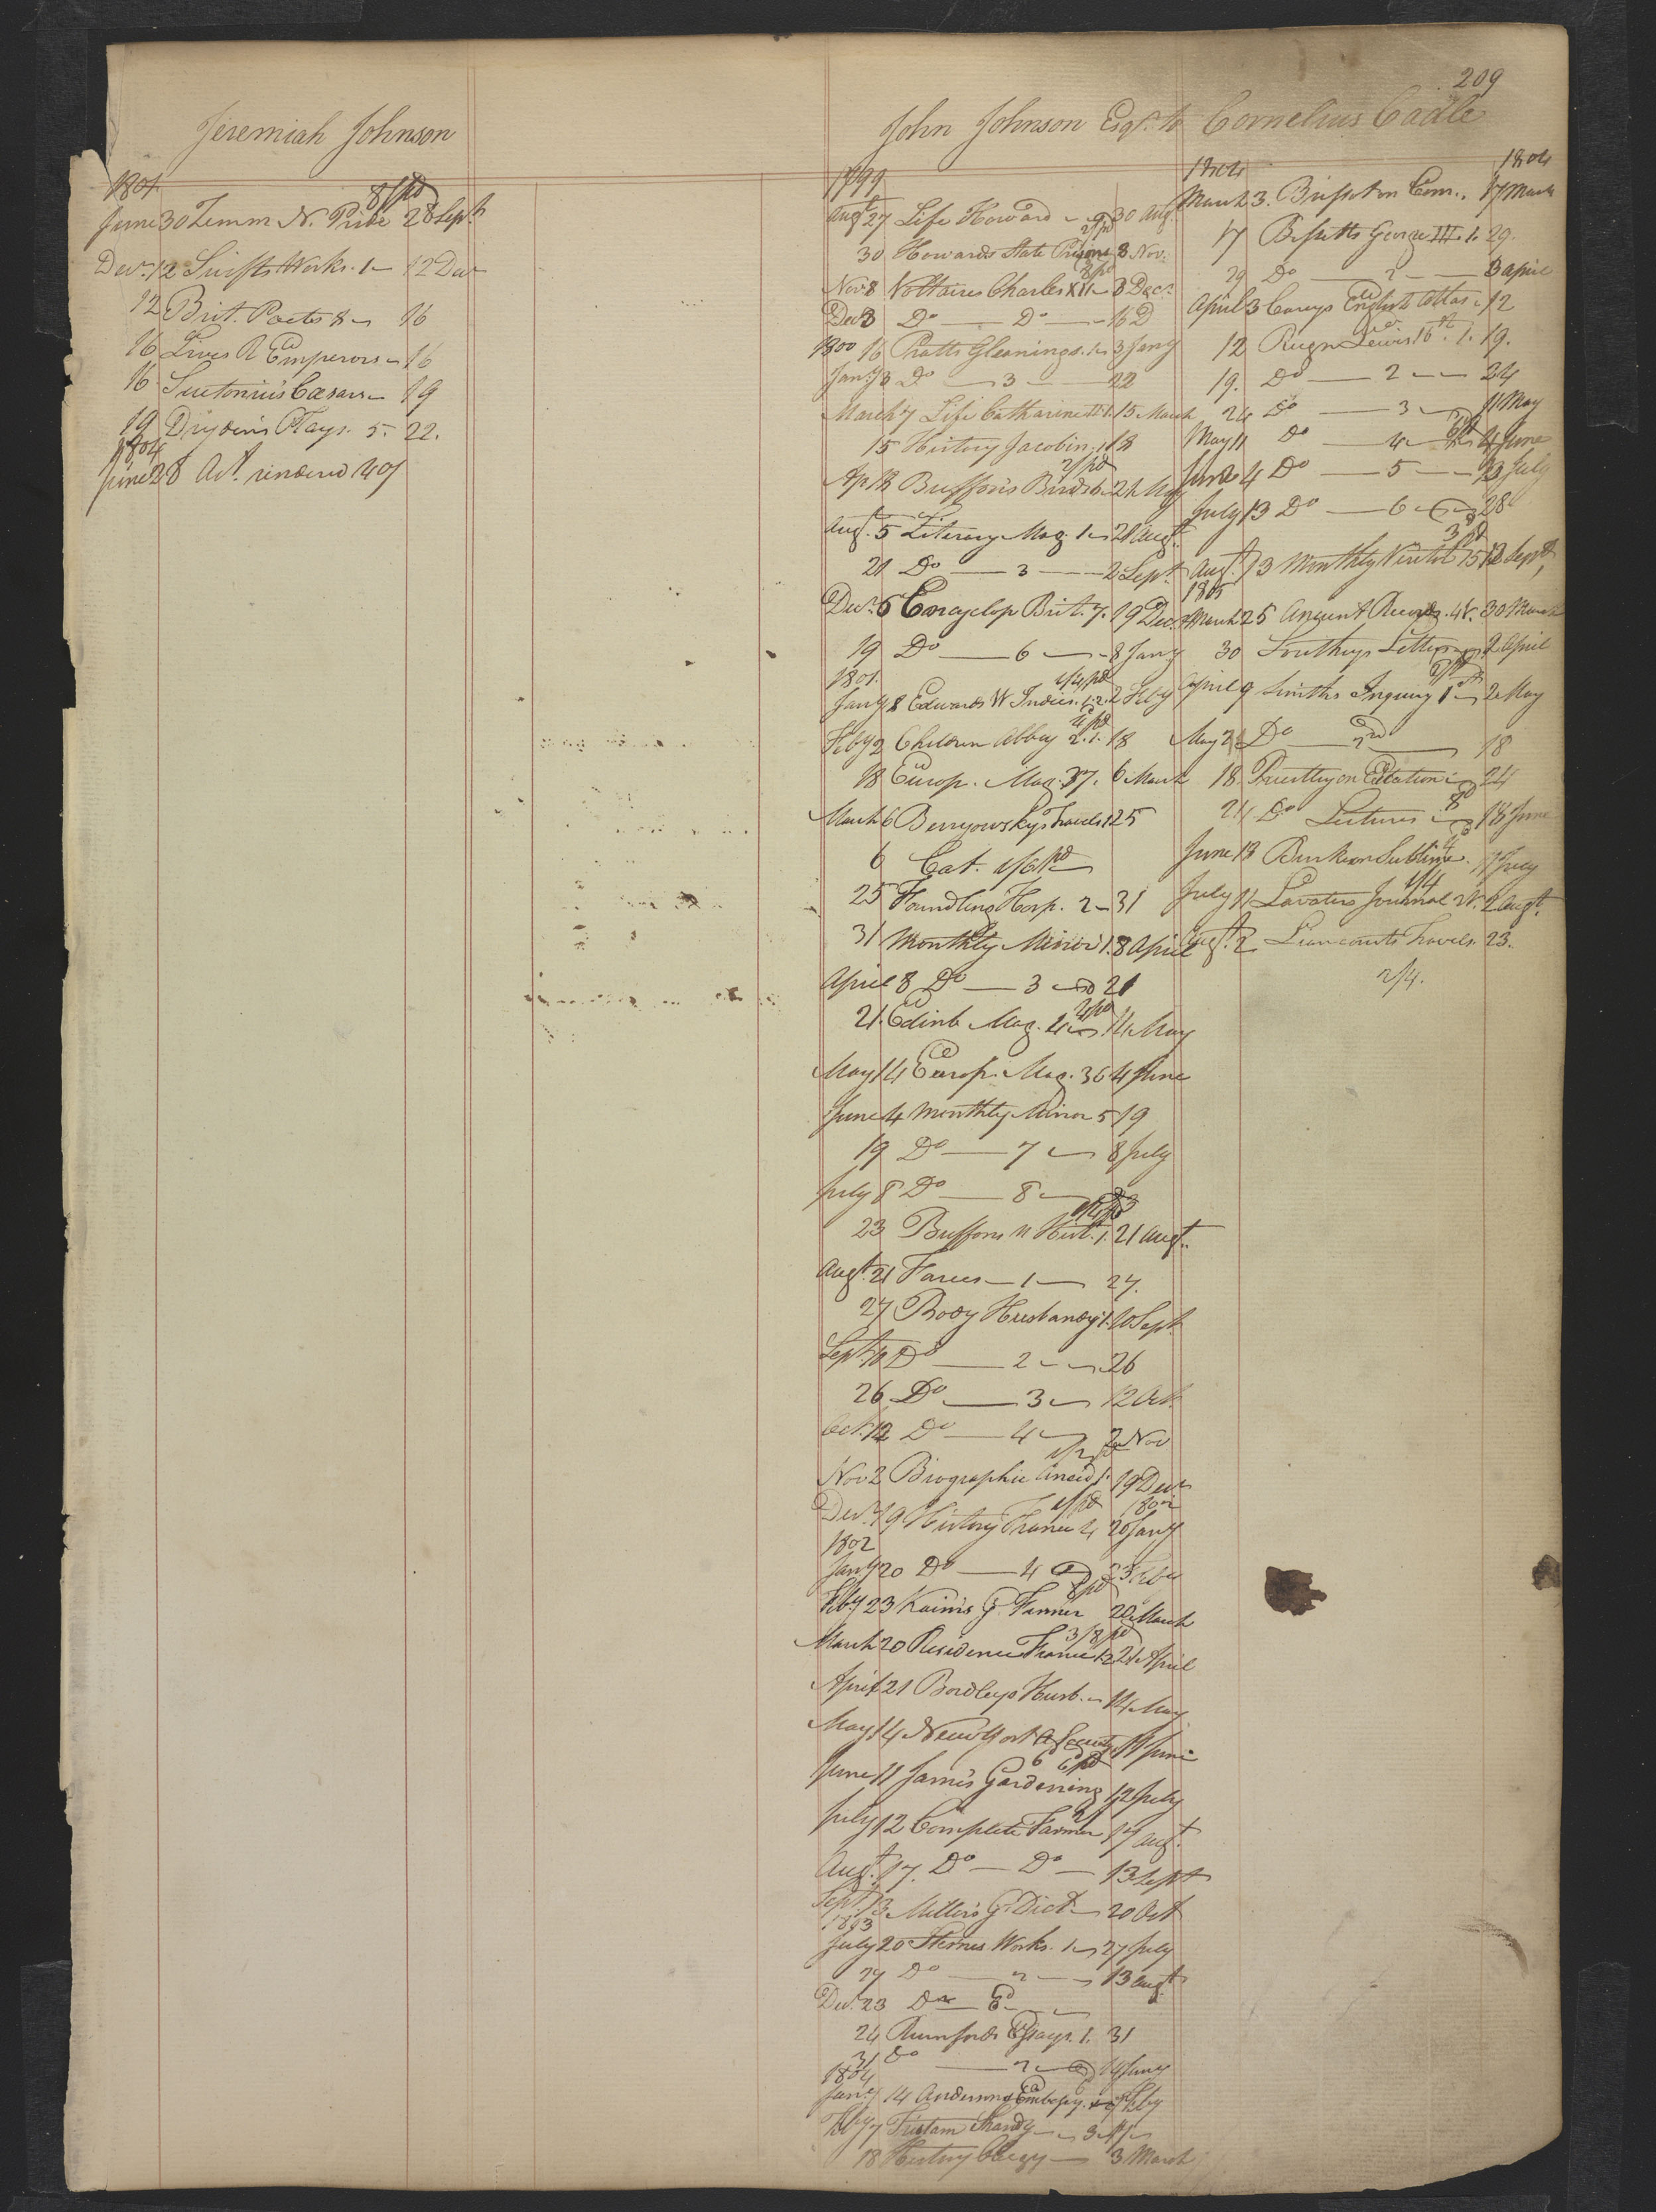 209
Jeremiah Johnson
1801
8/pd
June 30 Zimm N. Pride 28 Sept.
Decr. 12 Swifts Works. 1 12 Decr
12 Brit. Poets 8 16
16 Lives R Emperors 16
16 Suetonius Cæsars 19
19 Drydens Plays. 5. 22.
1804
June 28 Act. rendered 40/
John Johnson Esqr. to Cornelius Cadle
1799
Augt 27 Life Howard 30 Aug.
2/pd
30 Howards State Prisons 8 Nov.
8/pd
Nov 8 Voltaires Charles XII 3 Decr.
Dec 3 Do Do 16 D
1800 16 Pratts Gleanings. 1 3 Jany
Jany 3 Do 3 22
March 7 Life Catharine II 1. 15 March
15 History Jacobin. 1 18
2/pd
Ap 18 Buffons Birds 21 May
Augt. 5 Literary Mag. 1 21 Augt.
21 Do 3 2 Sept.
Decr. 6 Encyclop Brit. 7. 19 Decr.
19 Do 6 8 Jany
1801.
1/4 pd
Jany 8 Edwards W Indies. 1.2. 2 Feby
4/pd
Feby 2 Children Abbey 2. 1. 18
18 Europ. Mag. 37. 6 March
March 6 Benyowskys Travels 1 25
6 Cat. 1/6 pd
25 Foundling Hosp. 2 31
31 Monthly Mirror 1. 8 April
April 8 Do 3 21
2/pd
21. Edinb Mag. 4 14 May
May 14 Europ. Mag. 36 4 June
June 4 Monthly Mirror 5 19
19 Do 7 8 July
July 8 Do 8 23
23 Buffons N Hist. 1. 21 Augt.
Augt. 21 Farces 1 27.
27 Body Husbandry 1. 10 Sept.
Sept. 10 Do 2 26
26 Do 3 12 Oct.
Oct. 12 Do 4 2 Nov
Nov 2 Biographic Anecd 1. 19 Decr
1/pd 1802
Decr. 19 History France 4 20 Jany
1802
Jany 20 Do 4 23 Feby
8/pd
Feby 23 Kaims G. Farmer 20 March
3/8/pd
March 20 Residence France 1 2 21 April
April 21 Bordleys Husb. 14 May
May 14 New York A Society 11 June
June 11 James Gardening 12 July
July 12 Complete Farmer 17 Augt.
Augt. 17. Do Do 13 Sept
Sept 13 Millers G Dict. 20 Oct
1803
July 20 Sternes Works. 1 27 July
27 Do 2 13 Augt
Decr. 23 Do
24 Rumfords Essays. 1. 31
31 Do 2 14 Jany
1804
Jany 14 Andersons Embassy. Feby
Feby 7 Tristam Shandy
18 History Clergy 3 March
1804 1804
March 3. Brisset on Com. 17 March
17 Bissetts George III. 1. 29.
29 Do 2 3 April
April 3 Careys English Atlas 12
12 Reign Lewis 16th. 1. 19.
19. Do 2 24
24 Do 3 11 May
May 11 Do 4 4 June
June 4 Do 5 13 July
July 13 Do 6 28
Augt. 13 Monthly Visitor 15 12 Sept,
1805
March 25 Ancient Records. 4 V. 30 March
30 Southeys Letters 2 April
April 9 Smiths Inquiry 1st 2 May
May 2 Do 2nd 18
18 Priestley on 24
24 Do Lectures 13 June
June 13 Burke on Sublime. 11 July
1/4
July 11 Lavaters Journal 2 V. 2 Augt.
Augt. 2 Liancourts Travels 23.
2/4.